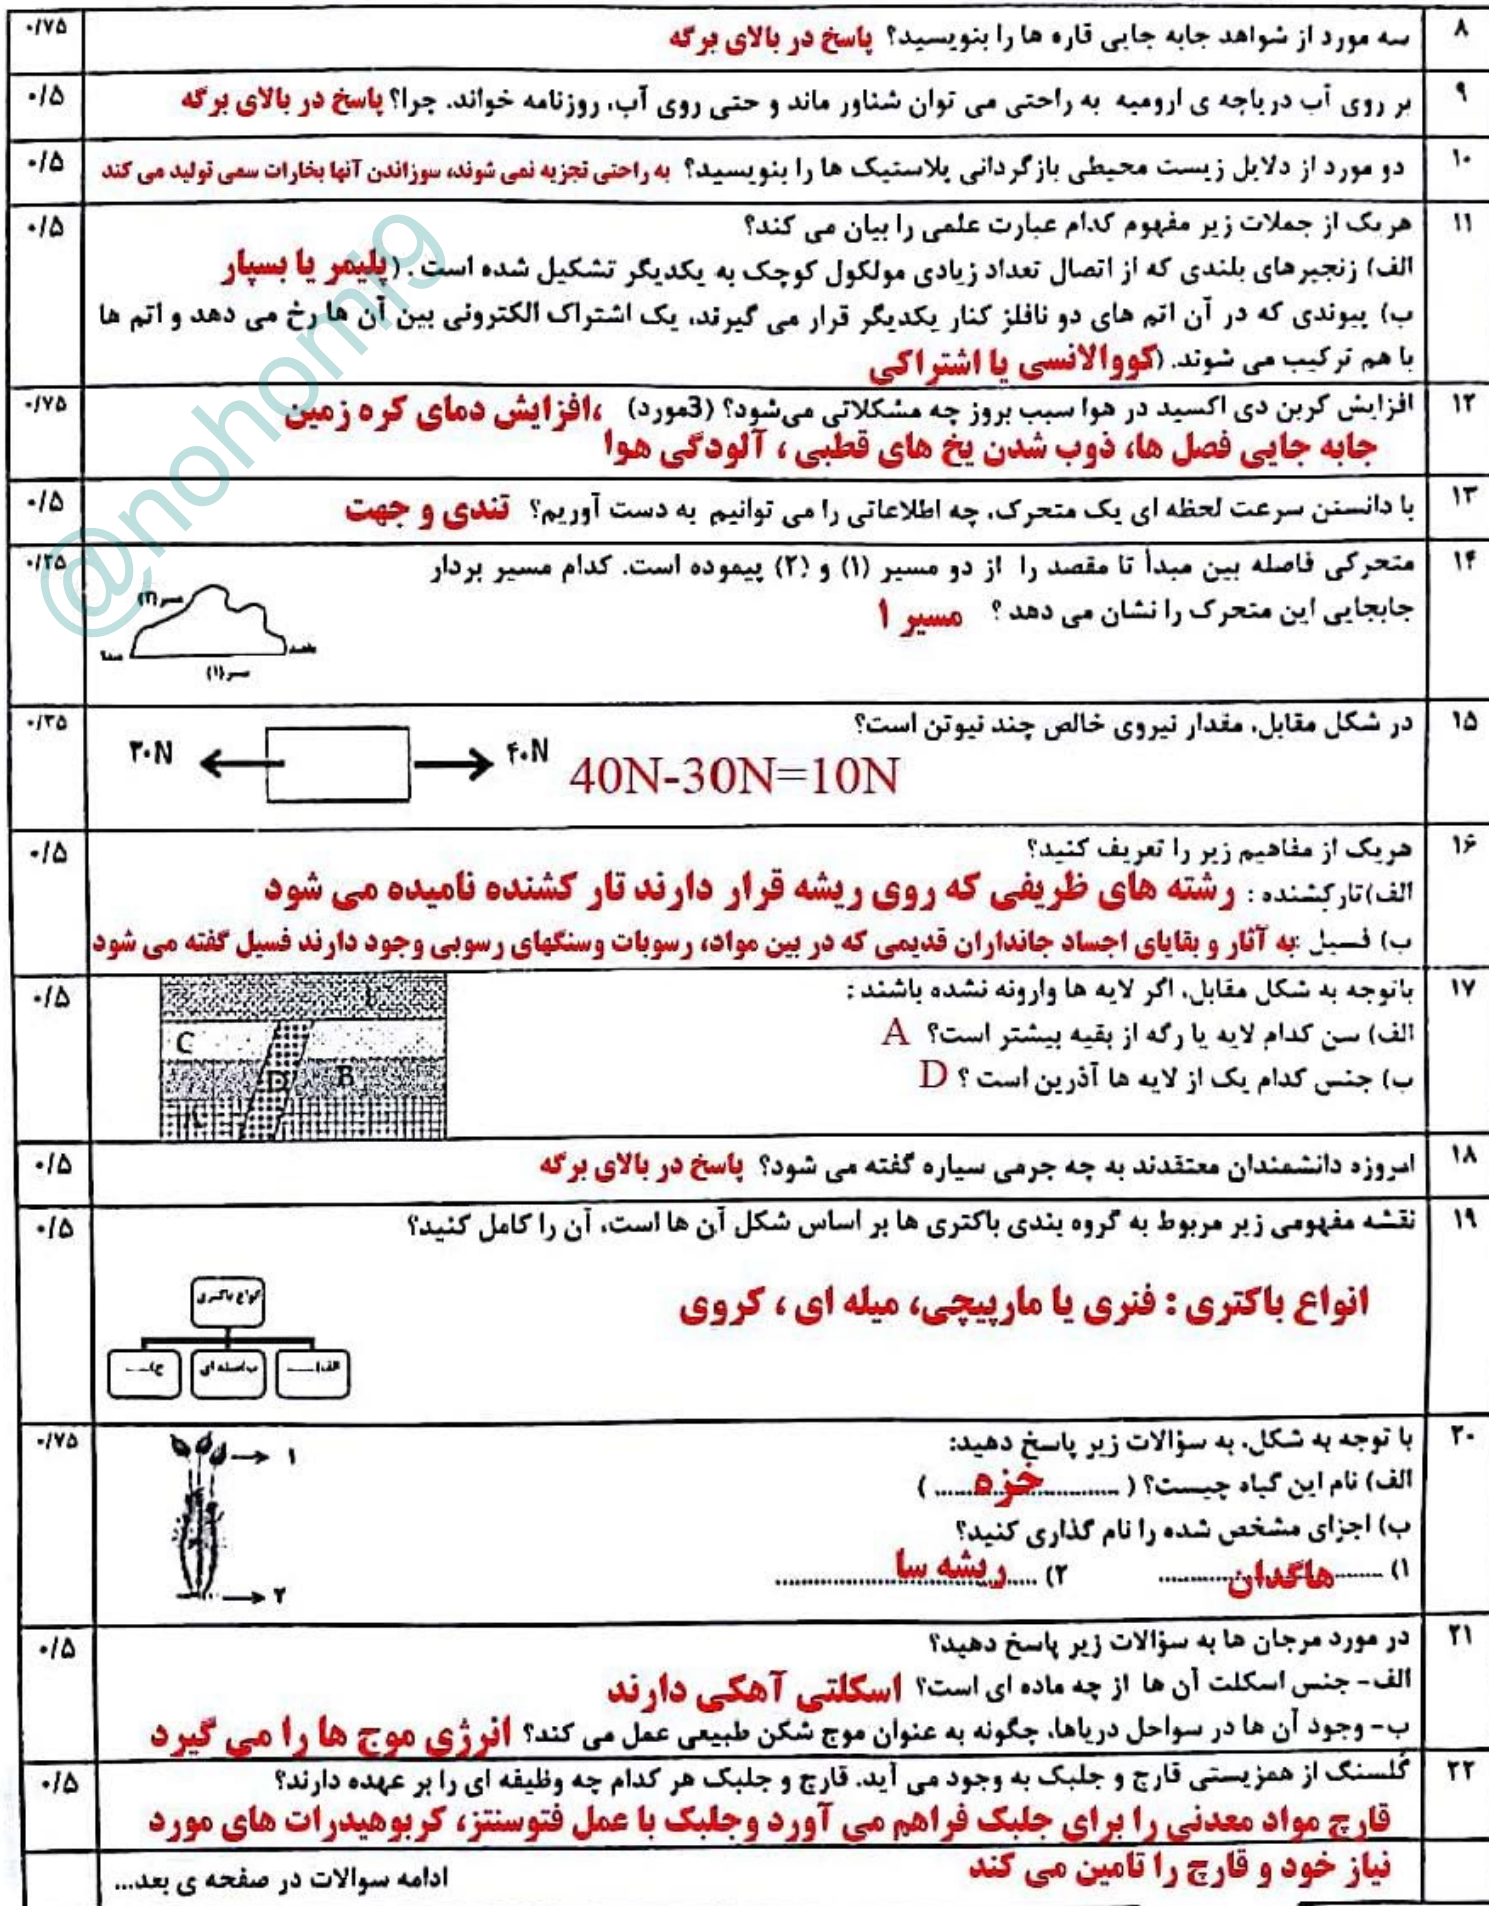 ۸ سه مورد از شواهد جابه جایی قاره ها را بنویسید؟ پاسخ در بالای برگه ۰/۷۵
۹ بر روی آب دریاچه ی ارومیه به راحتی می توان شناور ماند و حتی روی آب، روزنامه خواند. چرا؟ پاسخ در بالای برگه ۰/۵
۱۰ دو مورد از دلایل زیست محیطی بازگردانی پلاستیک ها را بنویسید؟ به راحتی تجزیه نمی شوند، سوزاندن آنها بخارات سمی تولید می کند ۰/۵
۱۱ هریک از جملات زیر مفهوم کدام عبارت علمی را بیان می کند؟ ۰/۵
الف) زنجیرهای بلندی که از اتصال تعداد زیادی مولکول کوچک به یکدیگر تشکیل شده است. (پلیمر یا بسپار
ب) پیوندی که در آن اتم های دو نافلز کنار یکدیگر قرار می گیرند، یک اشتراک الکترونی بین آن ها رخ می دهد و اتم ها
با هم ترکیب می شوند. (کووالانسی یا اشتراکی
۱۲ افزایش کربن دی اکسید در هوا سبب بروز چه مشکلاتی می‌شود؟ (3مورد) ،افزایش دمای کره زمین ۰/۷۵
جابه جایی فصل ها، ذوب شدن یخ های قطبی ، آلودگی هوا
۱۳ با دانستن سرعت لحظه ای یک متحرک، چه اطلاعاتی را می توانیم به دست آوریم؟ تندی و جهت ۰/۵
۱۴ متحرکی فاصله بین مبدأ تا مقصد را از دو مسیر (۱) و (۲) پیموده است. کدام مسیر بردار ۰/۲۵
جابجایی این متحرک را نشان می دهد ؟ مسیر ۱
مسیر(۲)
مبدأ مقصد
مسیر(۱)
۱۵ در شکل مقابل، مقدار نیروی خالص چند نیوتن است؟ ۰/۲۵
۳۰N ۴۰N 40N-30N=10N
۱۶ هریک از مفاهیم زیر را تعریف کنید؟ ۰/۵
الف)تارکشنده : رشته های ظریفی که روی ریشه قرار دارند تار کشنده نامیده می شود
ب) فسیل :به آثار و بقایای اجساد جانداران قدیمی که در بین مواد، رسوبات وسنگهای رسوبی وجود دارند فسیل گفته می شود
۱۷ باتوجه به شکل مقابل، اگر لایه ها وارونه نشده باشند : ۰/۵
الف) سن کدام لایه یا رگه از بقیه بیشتر است؟ A
ب) جنس کدام یک از لایه ها آذرین است ؟ D
C
D B
A
۱۸ امروزه دانشمندان معتقدند به چه جرمی سیاره گفته می شود؟ پاسخ در بالای برگه ۰/۵
۱۹ نقشه مفهومی زیر مربوط به گروه بندی باکتری ها بر اساس شکل آن ها است، آن را کامل کنید؟ ۰/۵
انواع باکتری
انواع باکتری : فنری یا مارپیچی، میله ای ، کروی
الف)...... ب)میله ای ج)......
۲۰ با توجه به شکل، به سؤالات زیر پاسخ دهید: ۰/۷۵
الف) نام این گیاه چیست؟ (........خزه........)
ب) اجزای مشخص شده را نام گذاری کنید؟
۱) ........هاگدان........ ۲) ........ریشه سا........
۱
۲
۲۱ در مورد مرجان ها به سؤالات زیر پاسخ دهید؟ ۰/۵
الف- جنس اسکلت آن ها از چه ماده ای است؟ اسکلتی آهکی دارند
ب- وجود آن ها در سواحل دریاها، چگونه به عنوان موج شکن طبیعی عمل می کند؟ انرژی موج ها را می گیرد
۲۲ گلسنگ از همزیستی قارچ و جلبک به وجود می آید. قارچ و جلبک هر کدام چه وظیفه ای را بر عهده دارند؟ ۰/۵
قارچ مواد معدنی را برای جلبک فراهم می آورد وجلبک با عمل فتوسنتز، کربوهیدرات های مورد
نیاز خود و قارچ را تامین می کند
ادامه سوالات در صفحه ی بعد...
@nohomi9